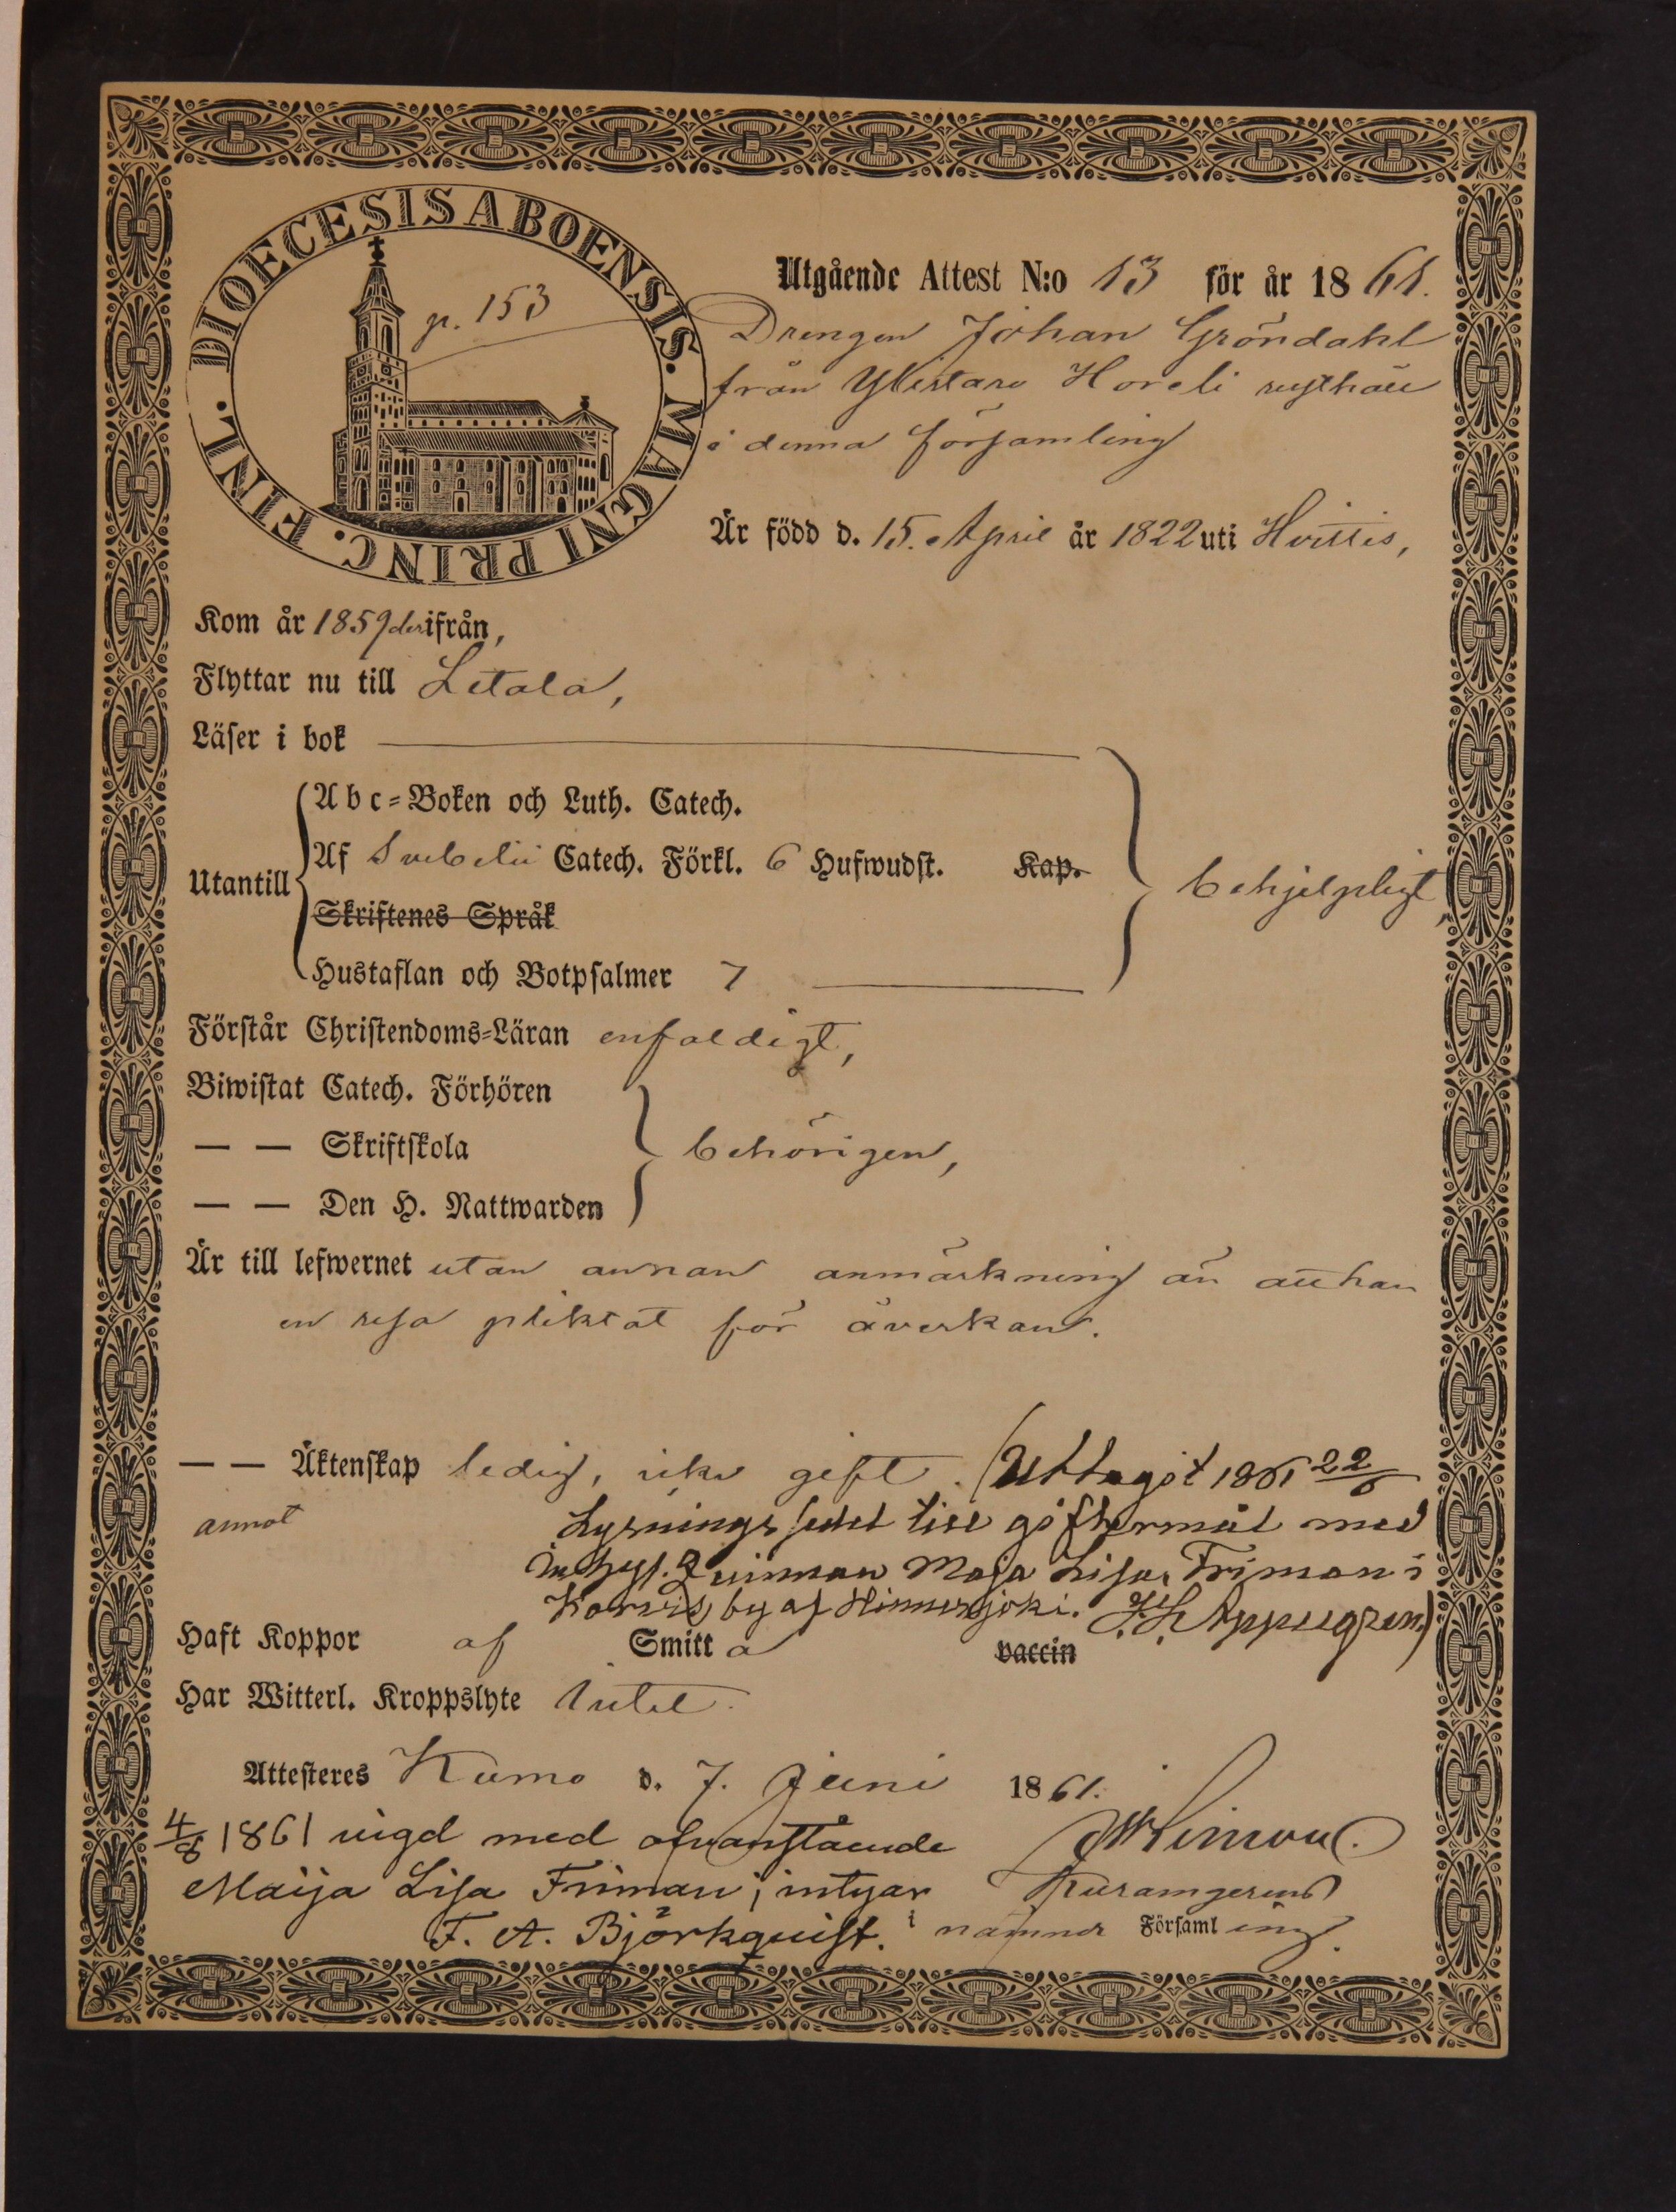 DIOECESIS ABOENSIS. MAGNI PRINC. FINL.
p. 153
Utgående Attest N:o 13 för år 1861.
Drengen Johan Gröndahl
från Ylistaro Horeli rusthåll
i denna församling
Är född d. 15. April år 1822 uti Hvittis,
Kom år 1859 derifrån,
Flyttar nu till Letala,
Läser i bok
Abc-Boken och Luth. Catech.
Utantill
Af Svebelii Catech. Förkl. 6 Hufwudst. Kap.
behjelpligt,
Skriftenes Språk
Hustaflan och Botpsalmer 7
Förstår Christendoms-Läran enfaldigt,
Biwistat Catech. Förhören
— — Skriftskola
behörigen,
— — Den H. Nattwarden
Är till lefwernet utan annan anmärkning än att han
en resa pliktat för åverkan.
— — Äktenskap ledig, icke gift. (Uttagit 1861 22/6
annot
Lysnings sedel till giftermål med
Inhys. Qvinnan Maja Lisa Friman i
by af Hinnerjoki. Appelgren.)
Haft Koppor af Smitta vaccin
Har Witterl. Kroppslyte Intet.
Attesteres Kumo d. 7. Juni 1861.
4/8 1861 vigd med ofvanstående
Maija Lisa Friman; intygar
F. A. Björkquist.
i nämnde Församling.